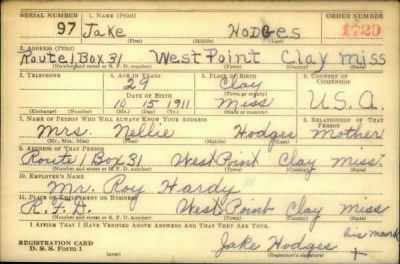 SERIAL NUMBER 1. NAME (Print) ORDER NUMBER
97 Jake Hodges 1729
(First) (Middle) (Last)
2. ADDRESS (Print)
Route 1 Box 31 West Point Clay Miss
(Number and street or R. F. D. number) (Town) (County) (State)
3. TELEPHONE 4. AGE IN YEARS 5. PLACE OF BIRTH 6. COUNTRY OF CITIZENSHIP
29 Clay
DATE OF BIRTH (Town or county)
10 15 1911 Miss U.S.A.
(Exchange) (Number) (Mo.) (Day) (Yr.) (State or country)
7. NAME OF PERSON WHO WILL ALWAYS KNOW YOUR ADDRESS 8. RELATIONSHIP OF THAT PERSON
Mrs. Nellie Hodges Mother
(Mr., Mrs., Miss) (First) (Middle) (Last)
9. ADDRESS OF THAT PERSON
Route 1 Box 31 West Point Clay Miss.
(Number and street or R. F. D. number) (Town) (County) (State)
10. EMPLOYER'S NAME
Mr. Roy Hardy
11. PLACE OF EMPLOYMENT OR BUSINESS
R.F.D. West Point Clay Miss
(Number and street or R. F. D. number) (Town) (County) (State)
I AFFIRM THAT I HAVE VERIFIED ABOVE ANSWERS AND THAT THEY ARE TRUE.
his mark
REGISTRATION CARD Jake Hodges x
D. S. S. Form 1 (over) (Registrant's signature)